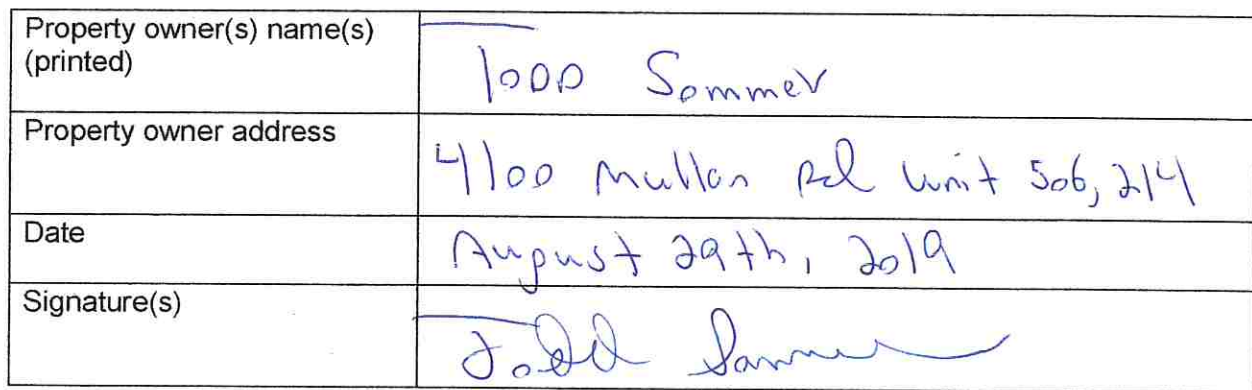 Property owner(s) name(s)
(printed)
Todd Sommer
Property owner address
4100 Mullan Rd Unit 506, 214
Date
August 29th, 2019
Signature(s)
Todd Sommer